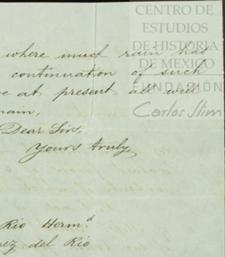 CENTRO DE
ESTUDIOS
DE HISTORIA
DE MEXICO
FUNDACIÓN
Carlos Slim
where much rain has
continuation of such
at present as well
main,
Dear Sir,
Yours truly,
Rio Herm.d
rez del Rio